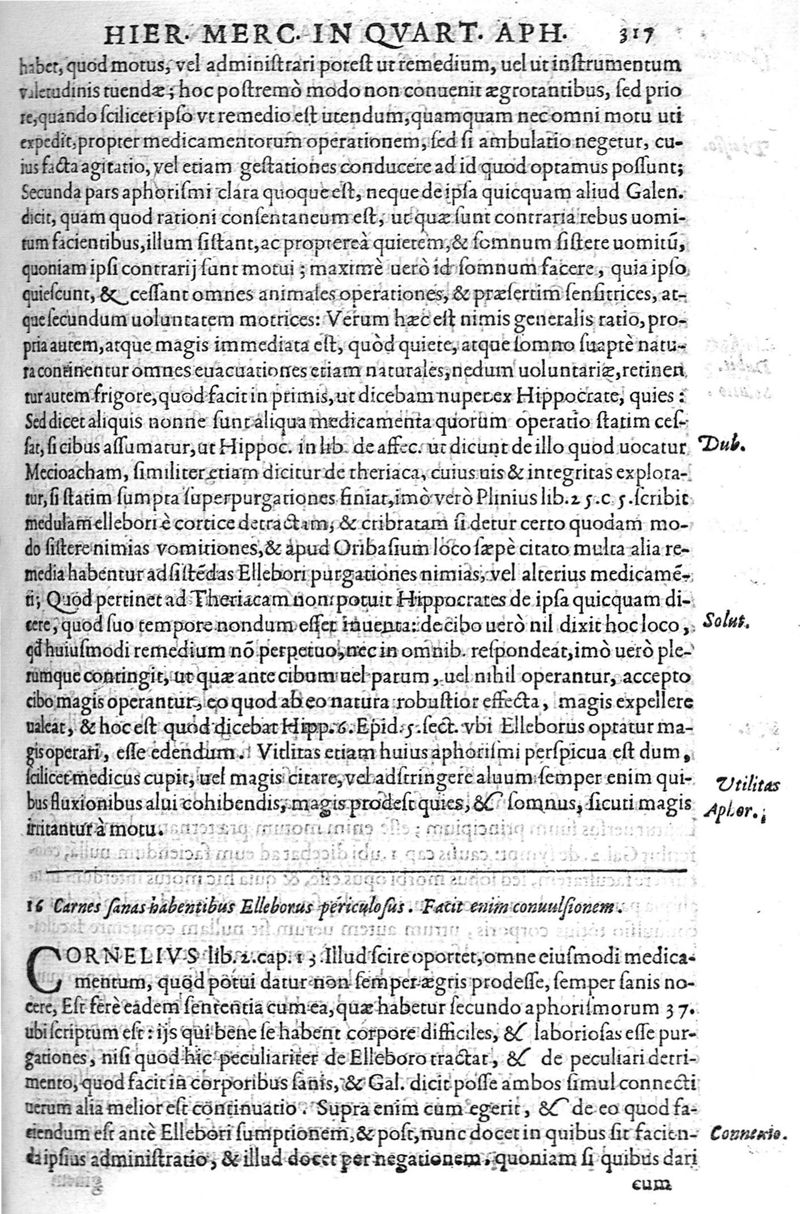 HIER. MERC. IN QVART. APH. 317
habet, quod motus, vel administrari potest ut remedium, uel ut instrumentum
valetudinis tuendæ; hoc postremò modo non conuenit ægrotantibus, sed prio
re, quando scilicet ipso vt remedio est utendum, quamquam nec omni motu uti
expedit, propter medicamentorum operationem, sed si ambulatio negetur, cu-
ius facta agitatio, vel etiam gestationes conducere ad id quod optamus possunt;
Secunda pars aphorismi clara quoque est, neque de ipsa quicquam aliud Galen.
dicit, quam quod rationi consentaneum est, ut quæ sunt contraria rebus uomi-
tum facientibus, illum sistant, ac proptereà quietem, & somnum sistere uomitū,
quoniam ipsi contrarij sunt motui; maximè uerò id somnum facere, quia ipso
quiescunt, & cessant omnes animales operationes, & præsertim sensitrices, at-
que secundum uoluntatem motrices: Verum hæc est nimis generalis ratio, pro-
pria autem, atque magis immediata est, quòd quiete, atque somno suaptè natu-
ra continentur omnes euacuationes etiam naturales, nedum uoluntariæ, retinen
tur autem frigore, quod facit in primis, ut dicebam nuper ex Hippocrate, quies:
Sed dicet aliquis nonne sunt aliqua medicamenta quorum operatio statim ces-
sat, si cibus assumatur, ut Hippoc. in lib. de affec. ut dicunt de illo quod uocatur Dub.
Mecioacham, similiter etiam dicitur de theriaca, cuius uis & integritas explora-
tur, si statim sumpta superpurgationes finiat, imò verò Plinius lib. 25. c. 5. scribit
medulam ellebori è cortice detractam, & cribratam si detur certo quodam mo-
do sistere nimias vomitiones, & apud Oribasium loco sæpè citato multa alia re-
media habentur ad sistēdas Ellebori purgationes nimias, vel alterius medicamē-
ti; Quod pertinet ad Theriacam non potuit Hippocrates de ipsa quicquam di-
cere, quod suo tempore nondum esset inuenta: de cibo uerò nil dixit hoc loco, Solut.
qđ huiusmodi remedium nō perpetuo, nec in omnib. respondeat, imò uerò ple-
rumque contingit, ut quæ ante cibum uel parum, uel nihil operantur, accepto
cibo magis operantur, eo quod ab eo natura robustior effecta, magis expellere
ualeat, & hoc est quod dicebat Hipp. 6. Epid. 5. sect. vbi Elleborus optatur ma-
gis operari, esse edendum. Vtilitas etiam huius aphorismi perspicua est dum,
scilicet medicus cupit, uel magis citare, vel adstringere aluum semper enim qui- Utilitas
bus fluxionibus alui cohibendis, magis prodest quies, & somnus, sicuti magis Aphor.
irritantur à motu.
16 Carnes sanas habentibus Elleborus periculosus. Facit enim conuulsionem.
CORNELIVS lib. 2. cap. 13. Illud scire oportet, omne eiusmodi medica-
mentum, quod potui datur non semper ægris prodesse, semper sanis no-
cere, Est ferè eadem sententia cum ea, quæ habetur secundo aphorismorum 37.
ubi scriptum est: ijs qui bene se habent corpore difficiles, & laboriosas esse pur-
gationes, nisi quod hic peculiariter de Elleboro tractat, & de peculiari detri-
mento, quod facit in corporibus sanis, & Gal. dicit posse ambos simul connecti
uerum alia melior est continuatio. Supra enim cum egerit, & de eo quod fa-
ciendum est antè Ellebori sumptionem, & post, nunc docet in quibus sit facien- Connexio.
da ipsius administratio, & illud docet per negationem, quoniam si quibus dari
cum